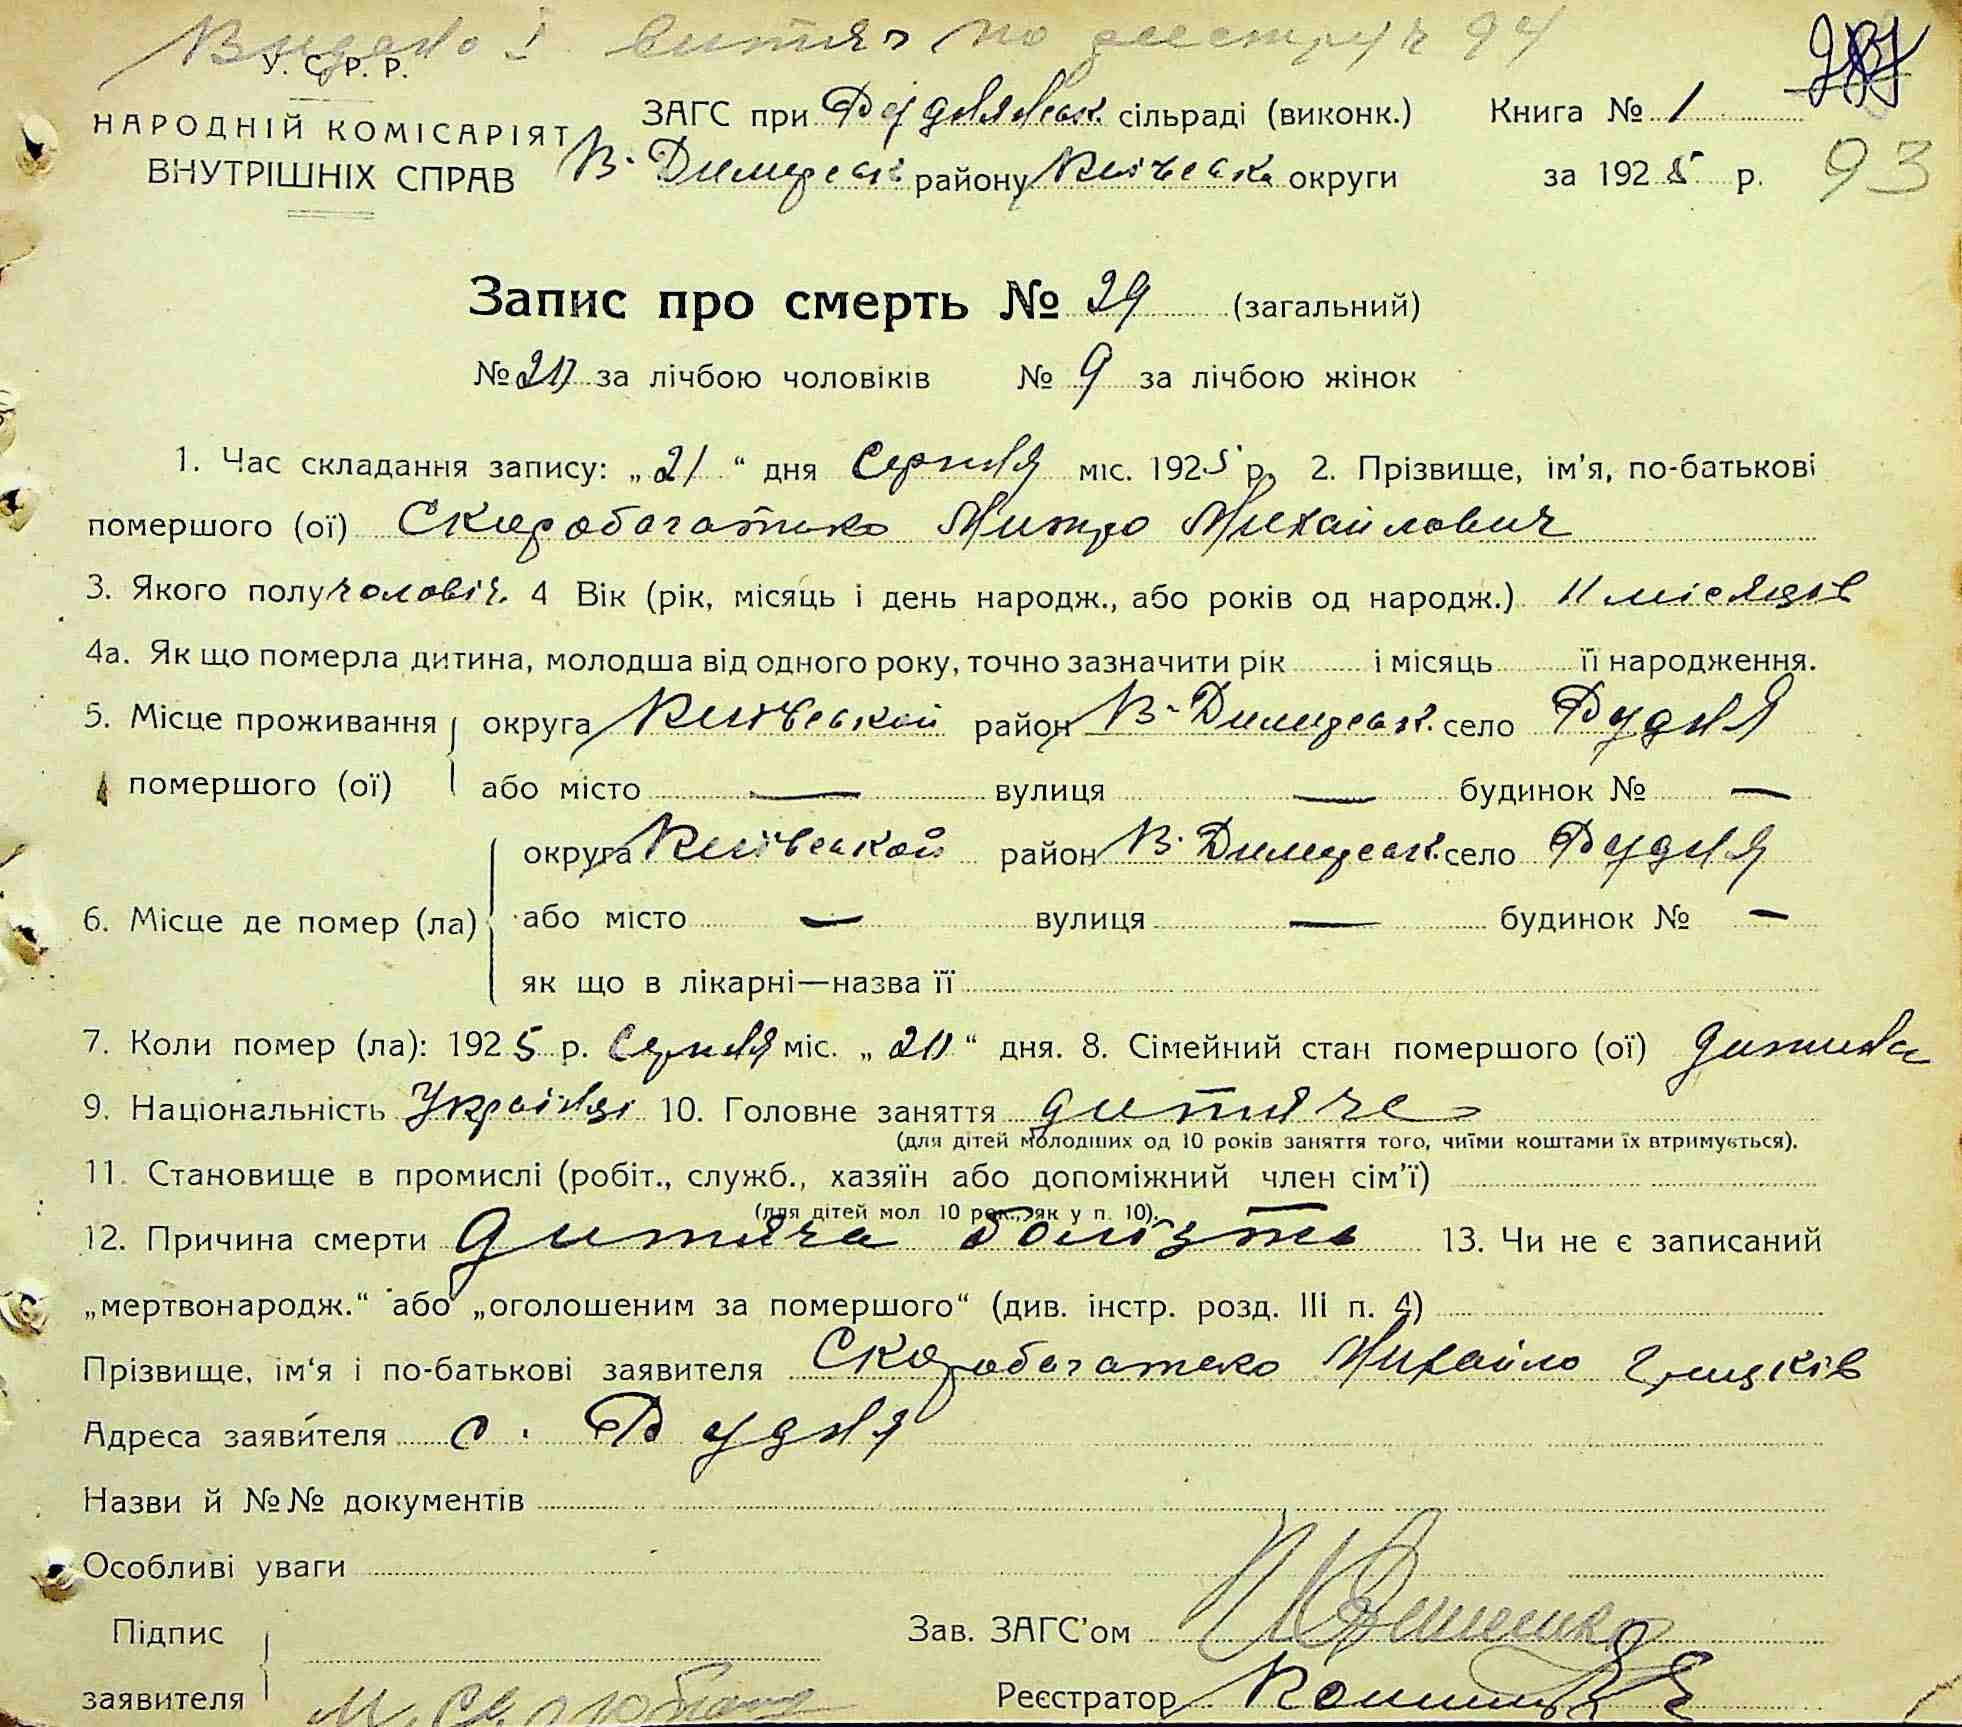 Видано І витяг по реєстру ч 94
У. С. Р. Р.
НАРОДНІЙ КОМІСАРІЯТ
ВНУТРІШНІХ СПРАВ
ЗАГС при Руднянськ. сільраді (виконк.) Книга № 1
В-Димерськ району Київська округи за 1925 р. 93
Запис про смерть № 29 (загальний)
№ 20 за лічбою чоловіків № 9 за лічбою жінок
1. Час складання запису: „21“ дня Серпня міс. 1925 р. 2. Прізвище, ім'я, по-батькові
помершого (ої) Скоробогатько Митро Михайлович
3. Якого полу чоловіч. 4 Вік (рік, місяць і день народж., або років од народж.) 11 місяців
4а. Як що померла дитина, молодша від одного року, точно зазначити рік і місяць її народження.
5. Місце проживання округа Київської район В-Димерськ. село Рудня
помершого (ої) або місто — вулиця — будинок № —
округа Київської район В. Димерськ. село Рудня
6. Місце де помер (ла) або місто — вулиця — будинок № —
як що в лікарні—назва її
7. Коли помер (ла): 1925 р. Серпня міс. „20“ дня. 8. Сімейний стан помершого (ої) дитина
9. Національність Українці 10. Головне заняття дитяче
(для дітей молодших од 10 років заняття того, чиїми коштами їх втримується).
11. Становище в промислі (робіт., служб., хазяїн або допоміжний член сім'ї)
(для дітей мол. 10 рок., як у п. 10).
12. Причина смерти дитяча болізть 13. Чи не є записаний
„мертвонародж.“ або „оголошеним за помершого“ (див. інстр. розд. III п. 4)
Прізвище, ім'я і по-батькові заявителя Скоробогатько Михайло Грицків
Адреса заявителя с. Рудня
Назви й №№ документів
Особливі уваги
Підпис
заявителя
Зав. ЗАГС'ом
Реєстратор